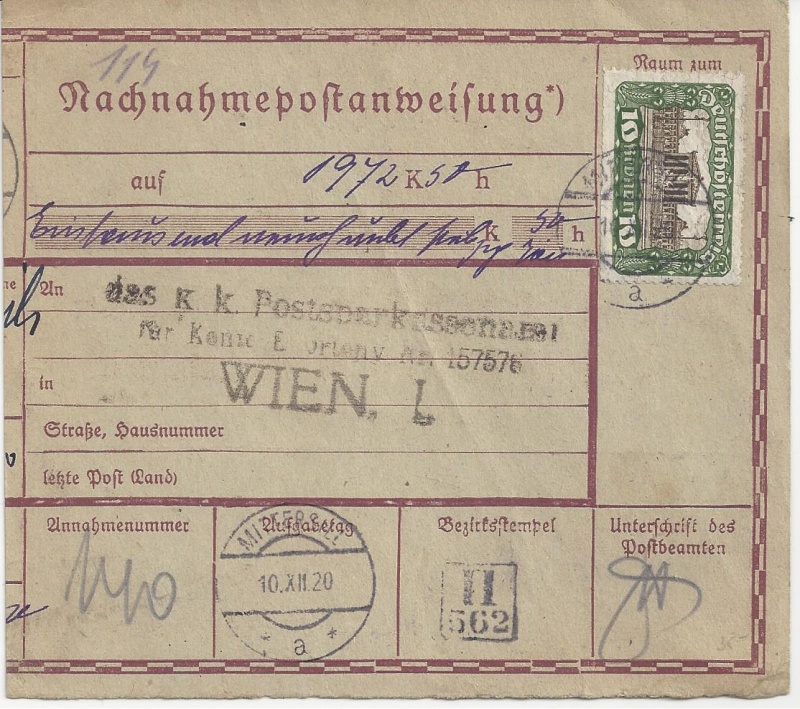 114
Raum zum
Nachnahmepostanweisung*)
Deutschösterreich
10 Kronen 10
auf 1972 K 50 h
Eintausend neunhundert K 50 h
An das K. k. Postsparkassenamt
für Konto Nr. 157576
in WIEN, I.
Straße, Hausnummer
letzte Post (Land)
Annahmenummer Aufgabetag Bezirksstempel Unterschrift des Postbeamten
MITTERSILL
10.XII.20
* a *
a
II
562